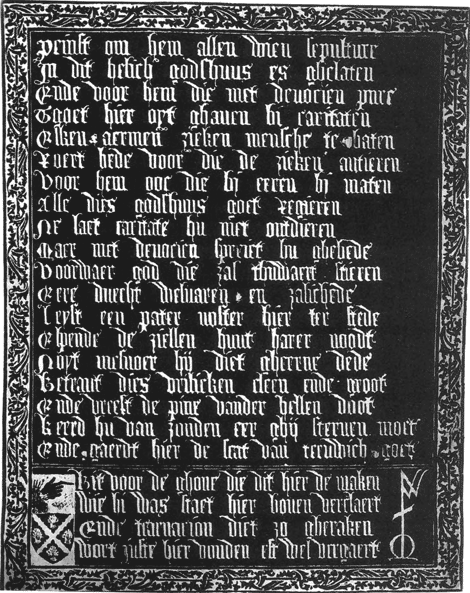 Peinst om hem allen wien sepulture
In dit helich godshuus es ghelaten
Ende voor hem die met devocien pure
Tgoet hier oyt ghaven bi caritaten
Elken aermen zieken mensche te baten
Voert bede voor die de zieken antieren
Voor hem ooc die bij eeren bj maten
Alle dies godshuus goet regieren
Ne laet caritate hu niet ontdieren
Maer met devocien spreict hu ghebede
Voorwaer god die zal thuwaert stieren
Eere duecht welvaren en zalichede
Leyst een pater noster hier ter stede
Elpende de ziellen huut harer noodt
Noyt wesnoet hij diet gheerne dede
Betraut dies brilicken cleen ende groot
Ende vreest de pine vander hellen doot
Keerd hu van zonden eer ghij sterven moet
Ende gaerdt hier de scat van eewich goet
Bit voor de ghone die dit hier de maken
Wie hi was staet hier boven verclaert
Ende tcarnacion diet zo gheraken
Wort zulke hier vonden est wel vergaert